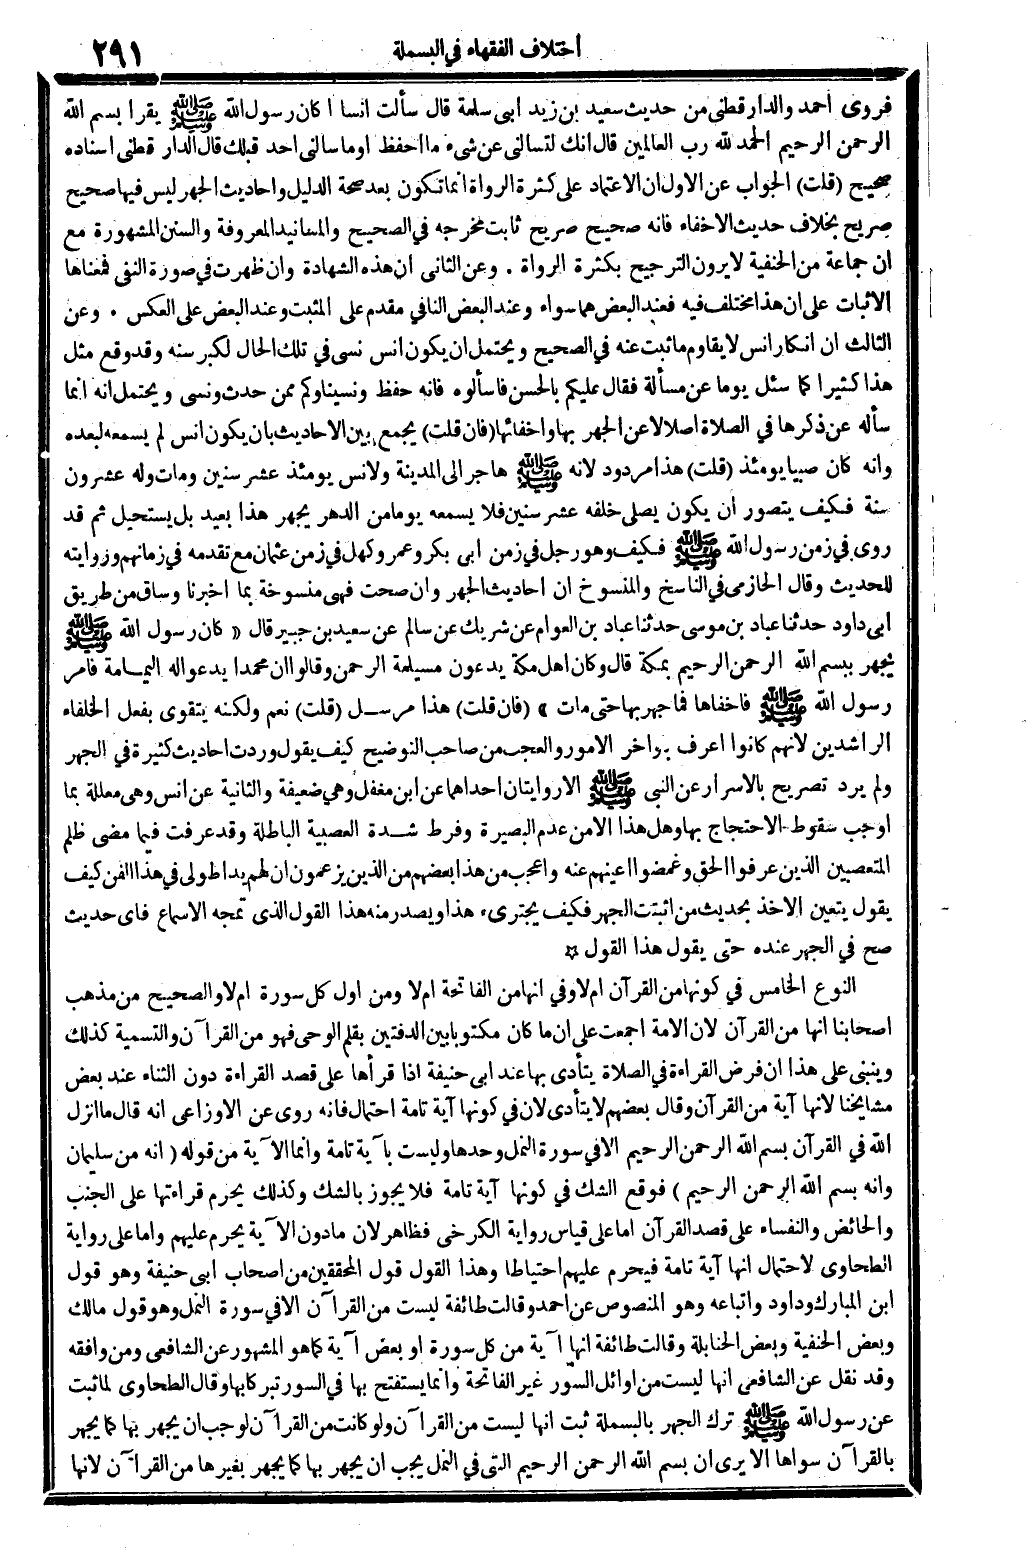 ٢٩١
أختلاف الفقهاء في البسملة
فروى احمد والدارقطني من حديث سعيد بن زيد ابى سلمة قال سألت انسا اكان رسول الله ﷺ يقرا بسم الله
الرحمن الرحيم الحمد لله رب العالمين قال انك لتسالنى عن شىء ما احفظ او ما سالنى احد قبلك قال الدار قطنى اسناده
صحيح (قلت) الجواب عن الاول ان الاعتماد على كثرة الرواة انما تكون بعد صحة الدليل واحاديث الجهر ليس فيها صحيح
صريح بخلاف حديث الاخفاء فانه صحيح صريح ثابت مخرجه في الصحيح والمسانيد المعروفة والسنن المشهورة مع
ان جماعة من الحنفية لا يرون الترجيح بكثرة الرواة . وعن الثانى ان هذه الشهادة وان ظهرت في صورة النفى فمعناها
الاثبات على ان هذا مختلف فيه فعند البعض هما سواء وعند البعض النافي مقدم على المثبت وعند البعض على العكس . وعن
الثالث ان انكار انس لا يقاوم ما ثبت عنه في الصحيح ويحتمل ان يكون انس نسى في تلك الحال لكبر سنه وقد وقع مثل
هذا كثيرا كما سئل يوما عن مسألة فقال عليكم بالحسن فاسألوه فانه حفظ ونسينا وكم ممن حدث ونسى ويحتمل انه انما
سأله عن ذكرها في الصلاة اصلا لا عن الجهر بها واخفائها (فان قلت) يجمع بين الاحاديث بان يكون انس لم يسمعه لبعده
وانه كان صبيا يومئذ (قلت) هذا مردود لانه ﷺ هاجر الى المدينة ولانس يومئذ عشر سنين ومات وله عشرون
سنة فكيف يتصور ان يكون يصلى خلفه عشر سنين فلا يسمعه يوما من الدهر يجهر هذا بعيد بل يستحيل ثم قد
روى في زمن رسول الله ﷺ فكيف وهو رجل في زمن ابى بكر وعمر وكهل في زمن عثمان مع تقدمه في زمانهم وروايته
للحديث وقال الحازمى في الناسخ والمنسوخ ان احاديث الجهر وان صحت فهى منسوخة بما اخبرنا وساق من طريق
ابى داود حدثنا عباد بن موسى حدثنا عباد بن العوام عن شريك عن سالم عن سعيد بن جبير قال « كان رسول الله ﷺ
يجهر ببسم الله الرحمن الرحيم بمكة قال وكان اهل مكة يدعون مسيلمة الرحمن وقالوا ان محمدا يدعو اله اليمامة فامر
رسول الله ﷺ فاخفاها فما جهر بها حتى مات » (فان قلت) هذا مرسل (قلت) نعم ولكنه يتقوى بفعل الخلفاء
الراشدين لانهم كانوا اعرف بواخر الامور والعجب من صاحب التوضيح كيف يقول وردت احاديث كثيرة في الجهر
ولم يرد تصريح بالاسرار عن النبى ﷺ الا روايتان احداهما عن ابن مغفل وهي ضعيفة والثانية عن انس وهى معللة بما
اوجب سقوط الاحتجاج بها وهل هذا الا من عدم البصيرة وفرط شدة العصبية الباطلة وقد عرفت فيما مضى ظلم
المتعصبين الذين عرفوا الحق وغمضوا اعينهم عنه واعجب من هذا بعضهم من الذين يزعمون ان لهم يدا طولى في هذا الفن كيف
يقول يتعين الاخذ بحديث من اثبتت الجهر فكيف يجترىء هذا ويصدر منه هذا القول الذى تمجه الاسماع فاى حديث
صح في الجهر عنده حتى يقول هذا القول ☆
النوع الخامس في كونها من القرآن ام لا وفي انها من الفاتحة ام لا ومن اول كل سورة ام لا والصحيح من مذهب
اصحابنا انها من القرآن لان الامة اجمعت على ان ما كان مكتوبا بين الدفتين بقلم الوحى فهو من القرآن والتسمية كذلك
وينبنى على هذا ان فرض القراءة في الصلاة يتأدى بها عند ابى حنيفة اذا قرأها على قصد القراءة دون الثناء عند بعض
مشايخنا لانها آية من القرآن وقال بعضهم لا يتأدى لان في كونها آية تامة احتمال فانه روى عن الاوزاعى انه قال ما انزل
الله في القرآن بسم الله الرحمن الرحيم الا في سورة النمل وحدها وليست بآية تامة وانما الآية من قوله ( انه من سليمان
وانه بسم الله الرحمن الرحيم ) فوقع الشك في كونها آية تامة فلا يجوز بالشك وكذلك يحرم قراءتها على الجنب
والحائض والنفساء على قصد القرآن اما على قياس رواية الكرخى فظاهر لان ما دون الآية يحرم عليهم واما على رواية
الطحاوى لاحتمال انها آية تامة فيحرم عليهم احتياطا وهذا القول قول المحققين من اصحاب ابى حنيفة وهو قول
ابن المبارك وداود واتباعه وهو المنصوص عن احمد وقالت طائفة ليست من القرآن الا في سورة النمل وهو قول مالك
وبعض الحنفية وبعض الحنابلة وقالت طائفة انها آية من كل سورة او بعض آية كما هو المشهور عن الشافعى ومن وافقه
وقد نقل عن الشافعى انها ليست من اوائل السور غير الفاتحة وانما يستفتح بها في السور تبركا بها وقال الطحاوى لما ثبت
عن رسول الله ﷺ ترك الجهر بالبسملة ثبت انها ليست من القرآن ولو كانت من القرآن لوجب ان يجهر بها كما يجهر
بالقرآن سواها الا يرى ان بسم الله الرحمن الرحيم التى في النمل يجب ان يجهر بها كما يجهر بغيرها من القرآن لانها